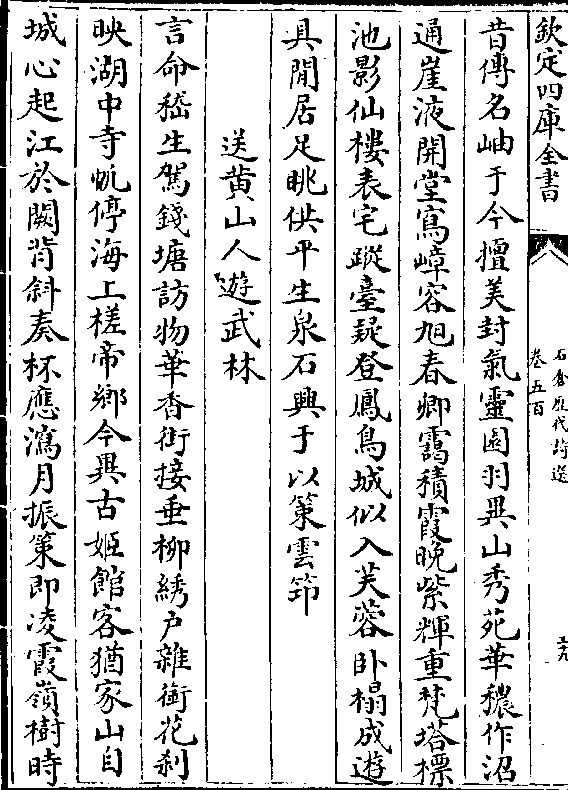 欽定四庫全書
石倉歷代詩選
卷五百
昔傳名岫于今擅美封氣靈園羽異山秀苑華穠作沼
通崖液開堂寫嶂容旭春卿靄積霞晚紫輝重梵塔標
池影仙樓表宅蹤臺疑登鳳鳥城似入芙蓉卧榻成遊
具閒居足眺供平生泉石興于以策雲笻
送黄山人遊武林
言命嵇生駕錢塘訪物華香街接垂柳綉户雜銜花刹
映湖中寺帆停海上槎帝鄉今異古姬館客猶家山自
城心起江於闕背斜奏杯應瀉月振策即凌霞嶺樹時